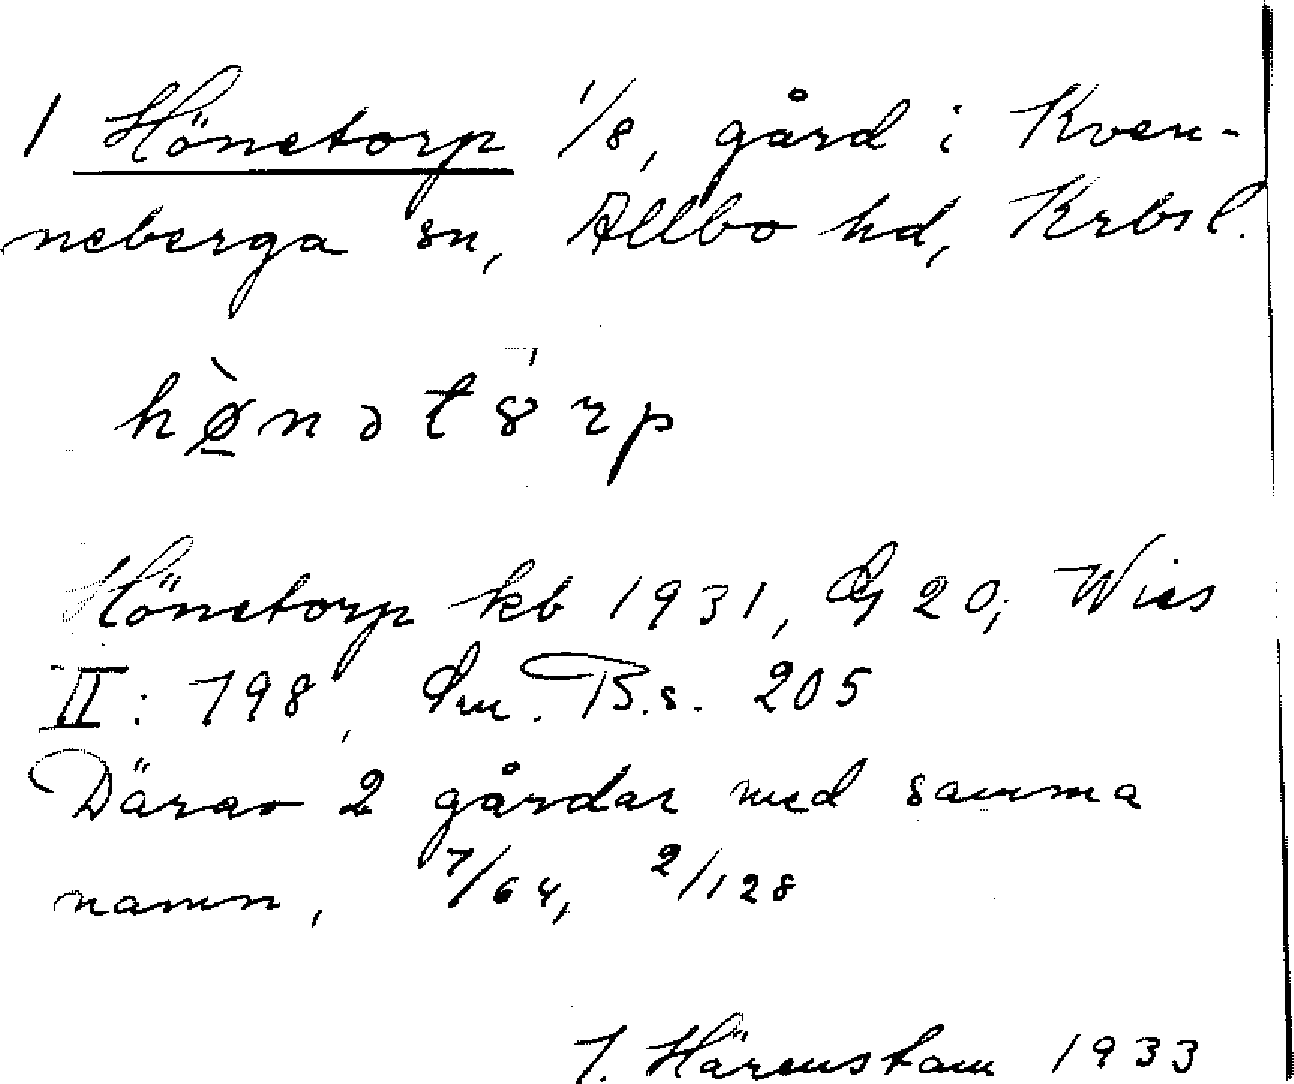 1 Hönetorp 1/8, gård i Kven-
neberga sn, Allbo hd, Krbsl.
hø̀nətȣrp
Hönetorp kb 1931, G 20; Wies
II: 798, Sm. B.s. 205
Därav 2 gårdar med samma
namn, 7/64, 2/128
J. Härenstam 1933